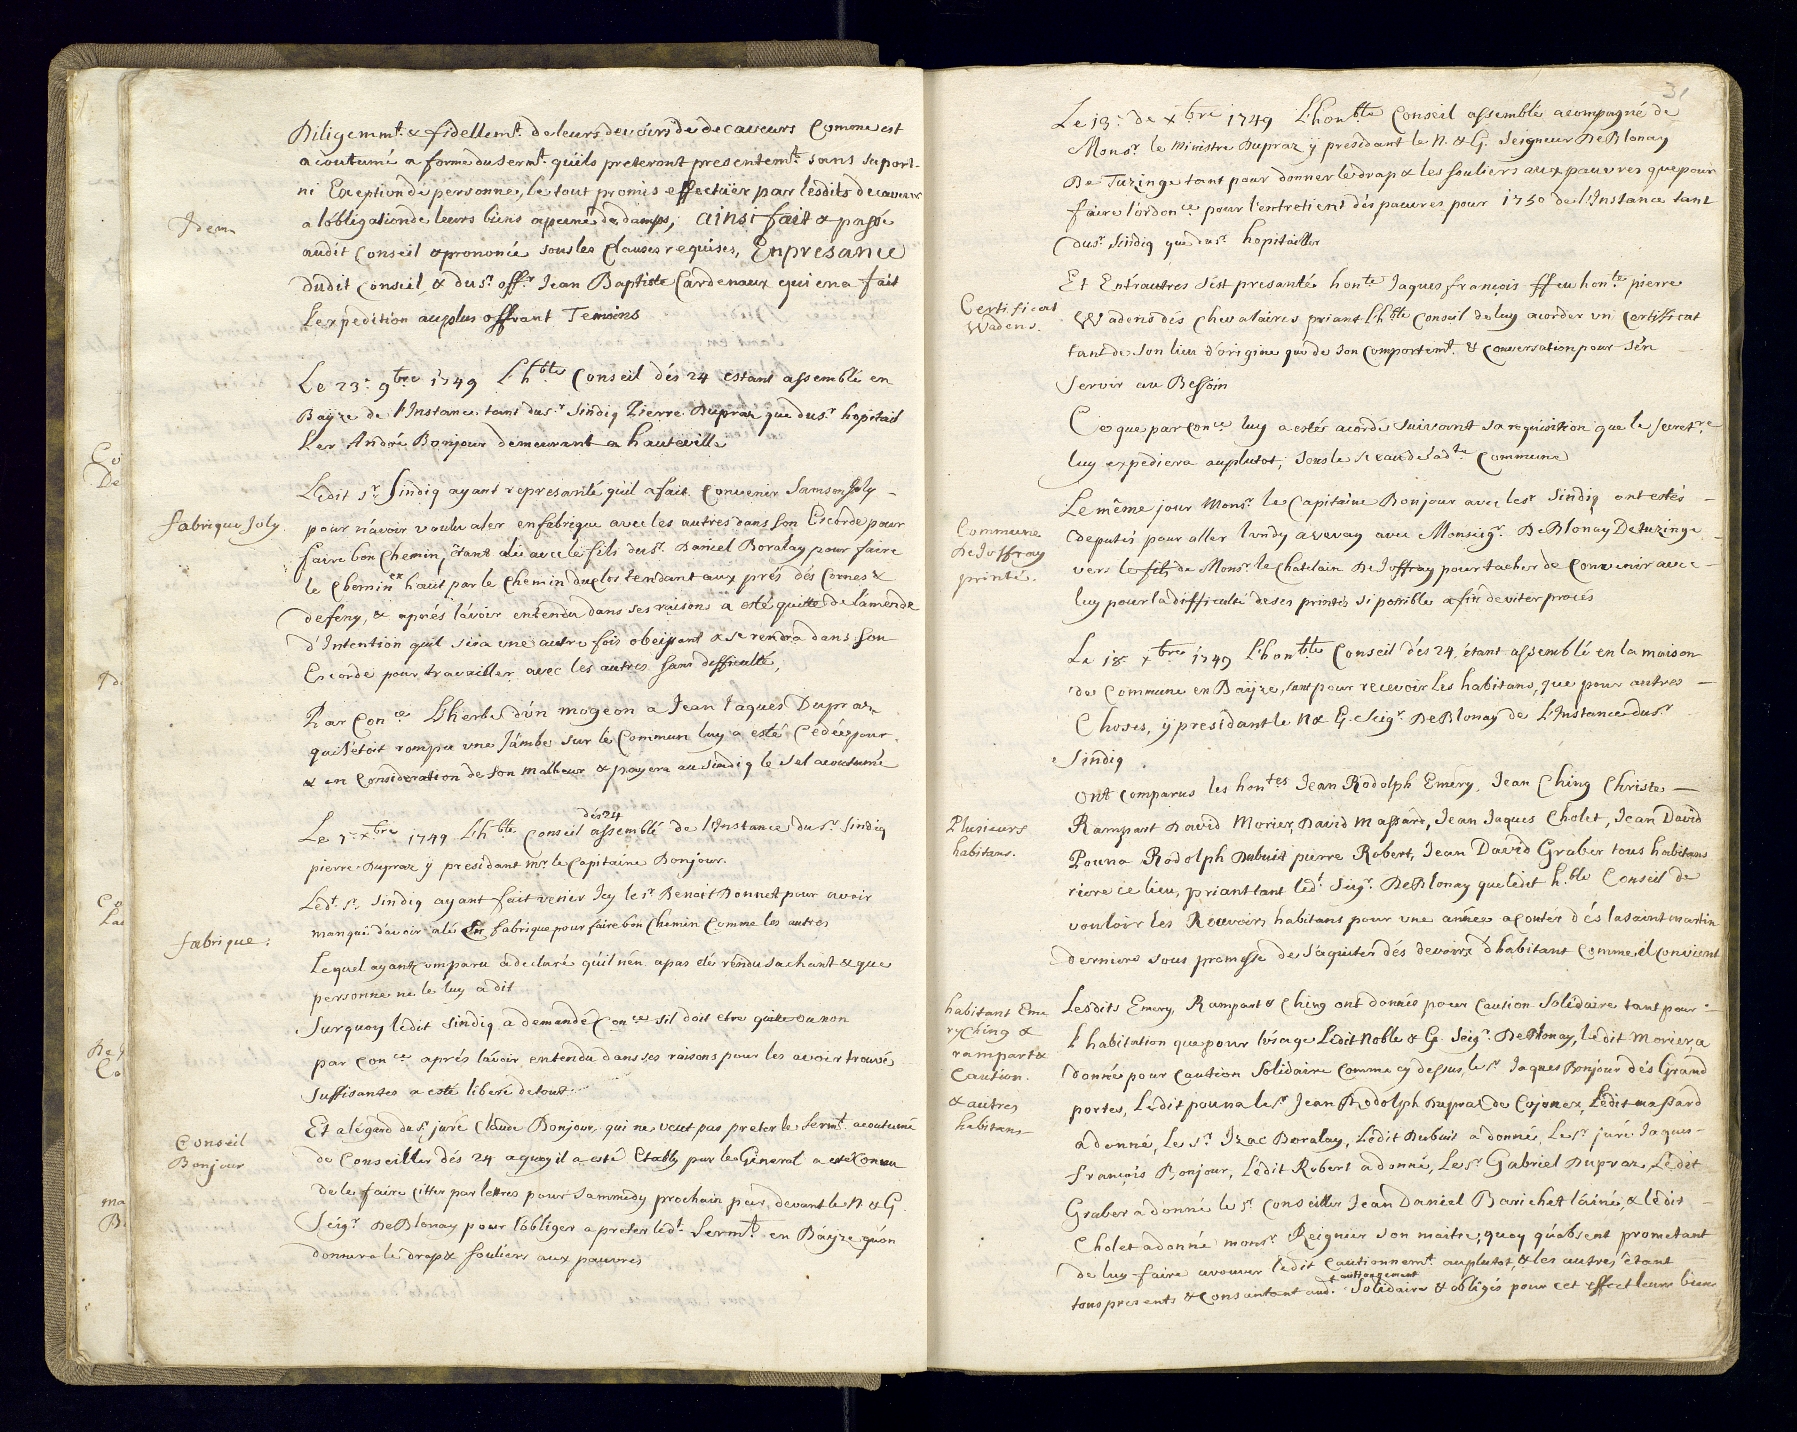 Diligemmt. & fidellemt. de leurs devoirs de decaveurs Comme est
acoutumé a forme du Sermt. quils preteront presentemt. sans suport
ni Exeption de personne, le tout promis effectüer par lesdits decaveurs
Idem
a lobligation de leurs biens a peine de damps, ainsi fait & passé
audit Conseil & prononcé sous les Clauses requises, En presance
dudit Conseil & du sr. offr. Jean Baptiste Cardenaux qui en a fait
Lexpedition au plus offrant Temoins
Le 23e. 9bre 1749 Lhble Conseil dés 24 estant assemblé en
Bayze de l'Instance tant du sr. Sindiq Pierre Dupraz que du sr. hopitail
Ler André Bonjour demeurant a hauteville
Ledit sr. Sindiq ayant representé quil a fait Convenir Samson Joly
fabrique Joly
pour n'avoir voulu aler en fabrique avec les autres dans son Escorde pour
faire bon Chemin, étant alé avec le fils du sr. Daniel Boralay pour faire
le Chemin en haut par le Chemin du clos tendant aux prés dés Cornes &
defeny, & aprés lávoir entendu dans ses raisons a esté quitté de lámende
d'Intention quil sera une autre fois obeissant & se rendra dans son
Escorde pour travailler avec les autres sans difficulté,
Par Conce Lherbe d'ún mogeon a Jean Jaques Dupraz
qui s'étoit rompu une Jámbe sur le Commun luy a esté Cédée pour
& en Consideration de son malheur & payera au sindiq le sel acoutumé
dés 24
Le 7e. xbre 1749 Lhble. Conseil assemblé de l'Instance du sr. Sindiq
pierre Dupraz ÿ presidant mr. le Capitaine Bonjour.
Ledt. sr. Sindiq ayant fait venir Icy le sr. Benoit Donnet pour avoir
manqué d'avoir alé en fabrique pour faire bon Chemin Comme les autres
fabrique:
Lequel ayant comparu a declaré quil nén a pas été rendu sachant & que
personne ne le luy a dit
Surquoy ledit Sindiq a demandé Conce sil doit etre quitte ou non
par Conce aprés lávoir entendu dans ses raisons pour les avoir trouvé
suffisantes a esté liberé de tout
Et a légard du sr. juré Claude Bonjour qui ne veut pas preter le Sermt. acoutumé
Conseil
Bonjour
de Conseiller dés 24 aquoy il a esté Etably par le General a esté Connu
de le faire Citter par lettres pour Sammedy prochain par devant le N. & G.
Seigr. DeBlonay pour lobliger a preter ledt. Sermt. en Bayze qúon
donnera le drap & souliers aux pauvres
31
Le 13e. de xbre 1749 Lhonble Conseil assemblé acompagné de
Monsr. le Ministre Dupraz ÿ presidant le N. & G. Seigneur DeBlonay
De Tuzinge tant pour donner le drap & les souliers aux pauvres que pour
faire lordonce. pour lentretient dés pauvres pour 1750 de l'Instance tant
du sr. Sindiq que du sr. hopitailler
Et Entrautres s'est presanté honte Jaques françois ffeu honte. pierre
Certificat
Wadens.
Wadens dés Chevalaires priant Lhble Conseil de luy acorder un Certifficat
tant de son lieu d'origine que de son Comportemt. & Conversation pour sén
Servir au Bessoin
Ce que par Conce luy a estés acordé suivant sa requisition que le secretre
luy expediera auplutot, sous le sceau de ladte. Commune
Le même jour Monsr. le Capitaine Bonjour avec le sr. Sindiq ont estés
Commune
De Joffray
printé.
deputés pour aller lundy a vevay avec Monseigr. DeBlonay De tuzinge
vers le fils de Monsr. le Chatelain De Joffray pour tacher de Convenir avec
luy pour la difficulté de ses printés si possible afin de viter procés
Le 18 xbre 1749 Lhonble Conseil dés 24 étant assemblé en la maison
de Commune en Baÿze, tant pour recevoir les habitans, que pour autres
Choses, ÿ presidant le N & G. Seigr. DeBlonay de L'Instance du sr.
Sindiq
Ont comparus les hontes Jean Rodolph Emery, Jean Ching Christe
Plusieurs
habitans.
Rampart David Morier, David Massard, Jean Jaques Cholet, Jean David
Pouna Rodolph Dubuit pierre Robert, Jean David Graber tous habitans
riere ce lieu, priant tant ledt. Seigr. DeBlonay que ledit h.ble Conseil de
vouloir lés Recevoirs habitans pour une année a conter dés la saint martin
derniere sous promesse de s'aquiter dés devoirs d'habitant Comme il Convient
habitans Eme
ry Ching &
rampart &
Caution.
& autres
habitans
Lesdits Emery, Rampart & Ching ont donnés pour Caution Solidaire tant pour
l habitation que pour lusage Ledit Noble & G. Seigr. DeBlonay, Ledit Morier, a
donné pour Caution Solidaire Comme cy dessus, le sr. Jaques Bonjour dés Grand
portes, Ledit pouna le sr. Jean Rodolph Dupraz de Cojonex, Ledit massard
a donné, Le sr. Izac Boralay, Ledit Dubuis a donné, Le sr. juré Jaques
françois Bonjour, Ledit Robert a donné, Le sr. Gabriel Dupraz, Ledit
Graber a donné le sr. Conseiller Jean Daniel Barichet láiné, & ledit
Cholet a donné monsr. Reignier son maitre, quoy qúabsent prometant
de luy faire avouer ledit Cautionnemt. auplutot, & les autres étant
cautionnement
tous presents & Consantant audt. Solidaire & obligés pour cet effect leurs biens